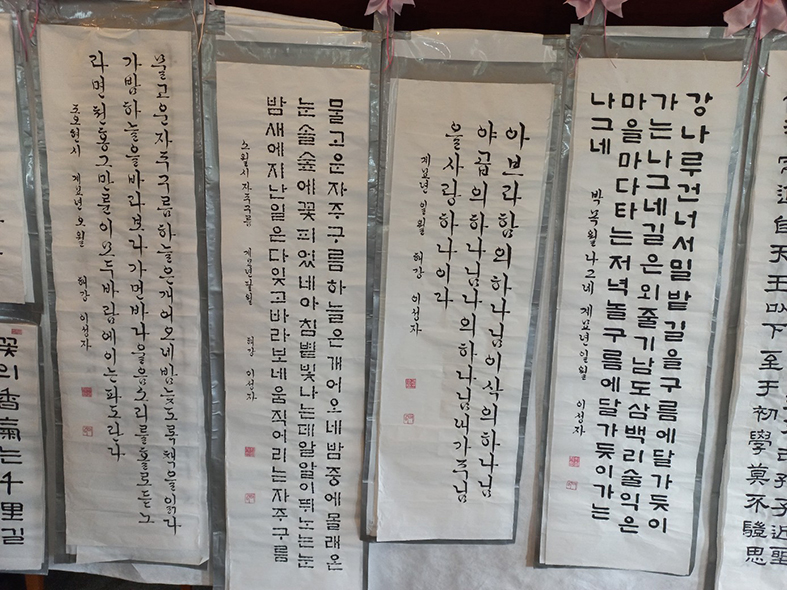 自天王以下至于初學莫不驗思
강나루건너서밀밭길을구름에달가듯이
가는나그네길은외줄기남도삼백리술익은
마을마다타는저녁놀구름에달가듯이가는
나그네
박목월나그네 계묘년일월 이성자
아브라함의하나님이삭의하나님
야곱의하나님나의하나님내가주님
을사랑하나이다
계묘년 일월 희강 이성자
물고운자주구름하늘은개어오네밤중에몰래온
눈솔숲에꽃피었네아침볕빛나는데알알이뛰노는눈
밤새에지난일은다잊고바라보네움직어리는자주구름
소월시자주구름 희강 이성자
물고운자주구름하늘은개어오네밤늦도록책을읽다
가밤하늘을바라보다가먼바다울음소리를홀로듣노
라면천경그만론이모두바람에이는파도란다
조오현시 계묘년오월 희강 이성자
꽃의香氣는千里길